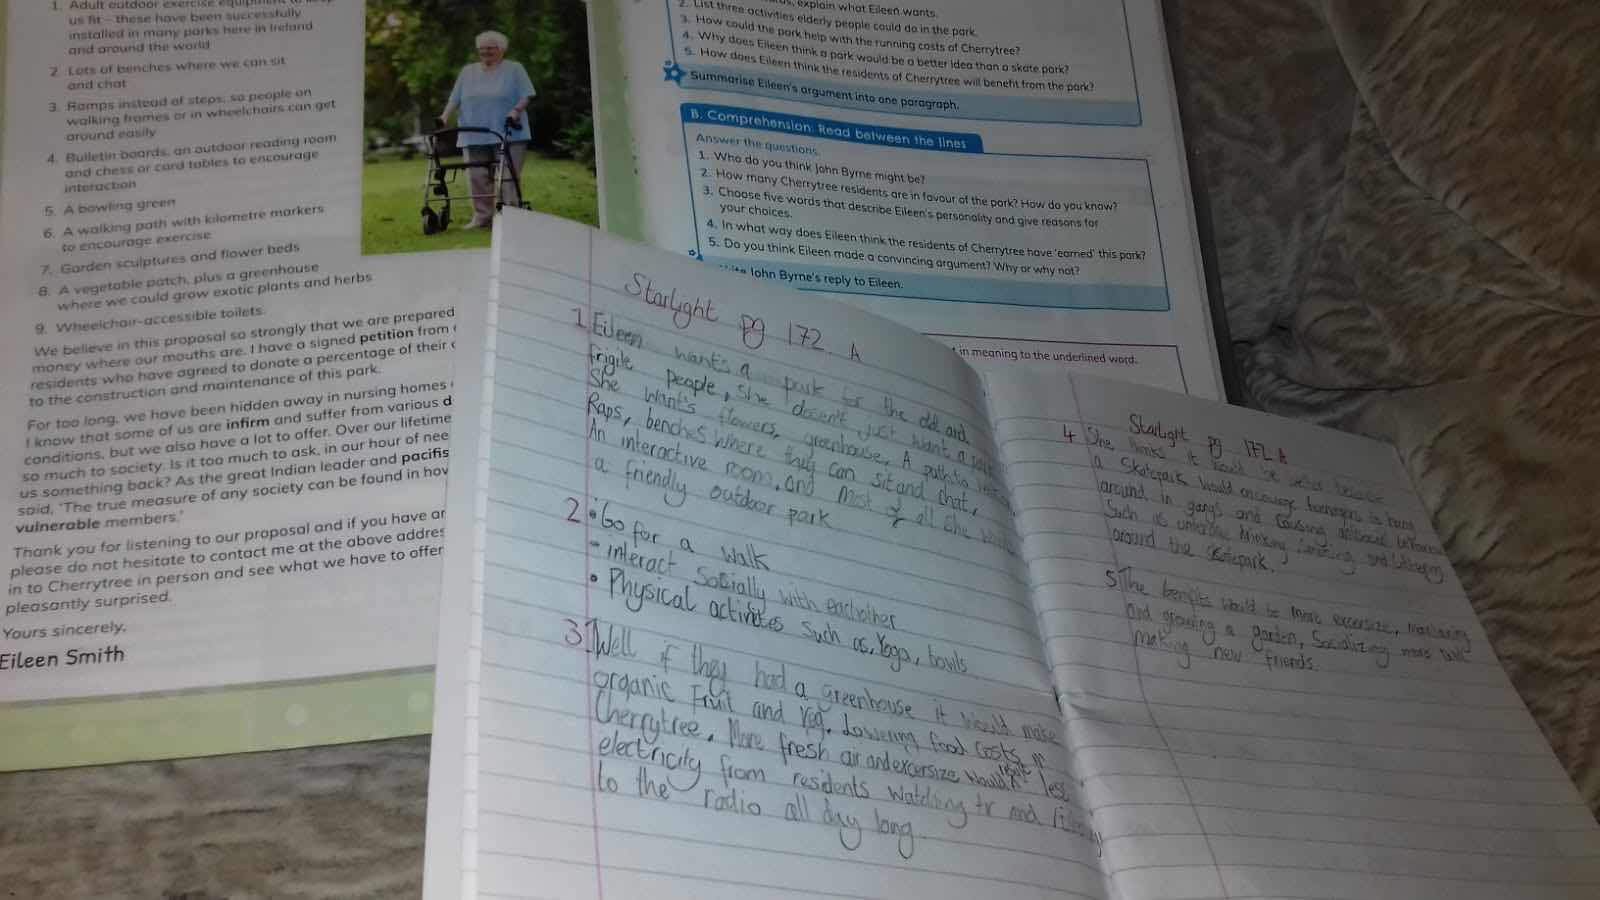 1. Adult outdoor exercise equipment to keep
us fit – these have been successfully
installed in many parks here in Ireland
and around the world
2. Lots of benches where we can sit
and chat
3. Ramps instead of steps, so people on
walking frames or in wheelchairs can get
around easily
4. Bulletin boards, an outdoor reading room
and chess or card tables to encourage
interaction
5. A bowling green
6. A walking path with kilometre markers
to encourage exercise
7. Garden sculptures and flower beds
8. A vegetable patch, plus a greenhouse
where we could grow exotic plants and herbs
9. Wheelchair-accessible toilets.
We believe in this proposal so strongly that we are prepared
money where our mouths are. I have a signed petition from
residents who have agreed to donate a percentage of their
to the construction and maintenance of this park.
For too long, we have been hidden away in nursing homes
I know that some of us are infirm and suffer from various
conditions, but we also have a lot to offer. Over our lifetime
so much to society. Is it too much to ask, in our hour of nee
us something back? As the great Indian leader and pacifis
said, 'The true measure of any society can be found in how
vulnerable members.'
Thank you for listening to our proposal and if you have an
please do not hesitate to contact me at the above addres
in to Cherrytree in person and see what we have to offer
pleasantly surprised.
Yours sincerely,
Eileen Smith
explain what Eileen wants.
2. List three activities elderly people could do in the park.
3. How could the park help with the running costs of Cherrytree?
4. Why does Eileen think a park would be a better idea than a skate park?
5. How does Eileen think the residents of Cherrytree will benefit from the park?
Summarise Eileen's argument into one paragraph.
B. Comprehension: Read between the lines
Answer the questions.
1. Who do you think John Byrne might be?
2. How many Cherrytree residents are in favour of the park? How do you know?
3. Choose five words that describe Eileen's personality and give reasons for
your choices.
4. In what way does Eileen think the residents of Cherrytree have 'earned' this park?
5. Do you think Eileen made a convincing argument? Why or why not?
John Byrne's reply to Eileen.
in meaning to the underlined word.
Starlight pg 172 A
1 Eileen want's a park for the old and
frigile people, she doesn't just want a park
She want's flowers, greenhouse, A path to
Raps, benches where they can sit and chat,
An interactive room, and most of all she
a friendly outdoor park
2 • Go for a walk
- interact Socially with eachother
• Physical activites such as, Yoga, bowls
3 Well if they had a greenhouse it would make
organic Fruit and Veg. Lowering food costs in
Cherrytree. More fresh air and excersize would result les
electricity from residents watching tv and
to the radio all day long.
Starlight pg 172 A
4 She thinks it would be better because
a Skatepark would encourage teenagers to hang
around in gangs and causing
Such as underage drinking, and littering
around the skatepark.
5 The benefits would be more excersize,
and growing a garden, Socializing more and
making new friends.